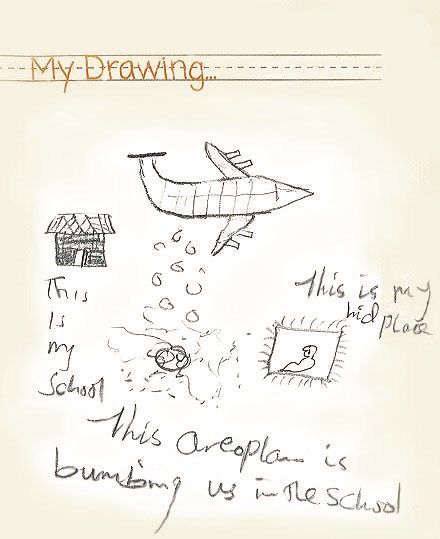 My Drawing...
This
Is
my
School
This is my
hid place
This areoplan is
bumbimg us in the school